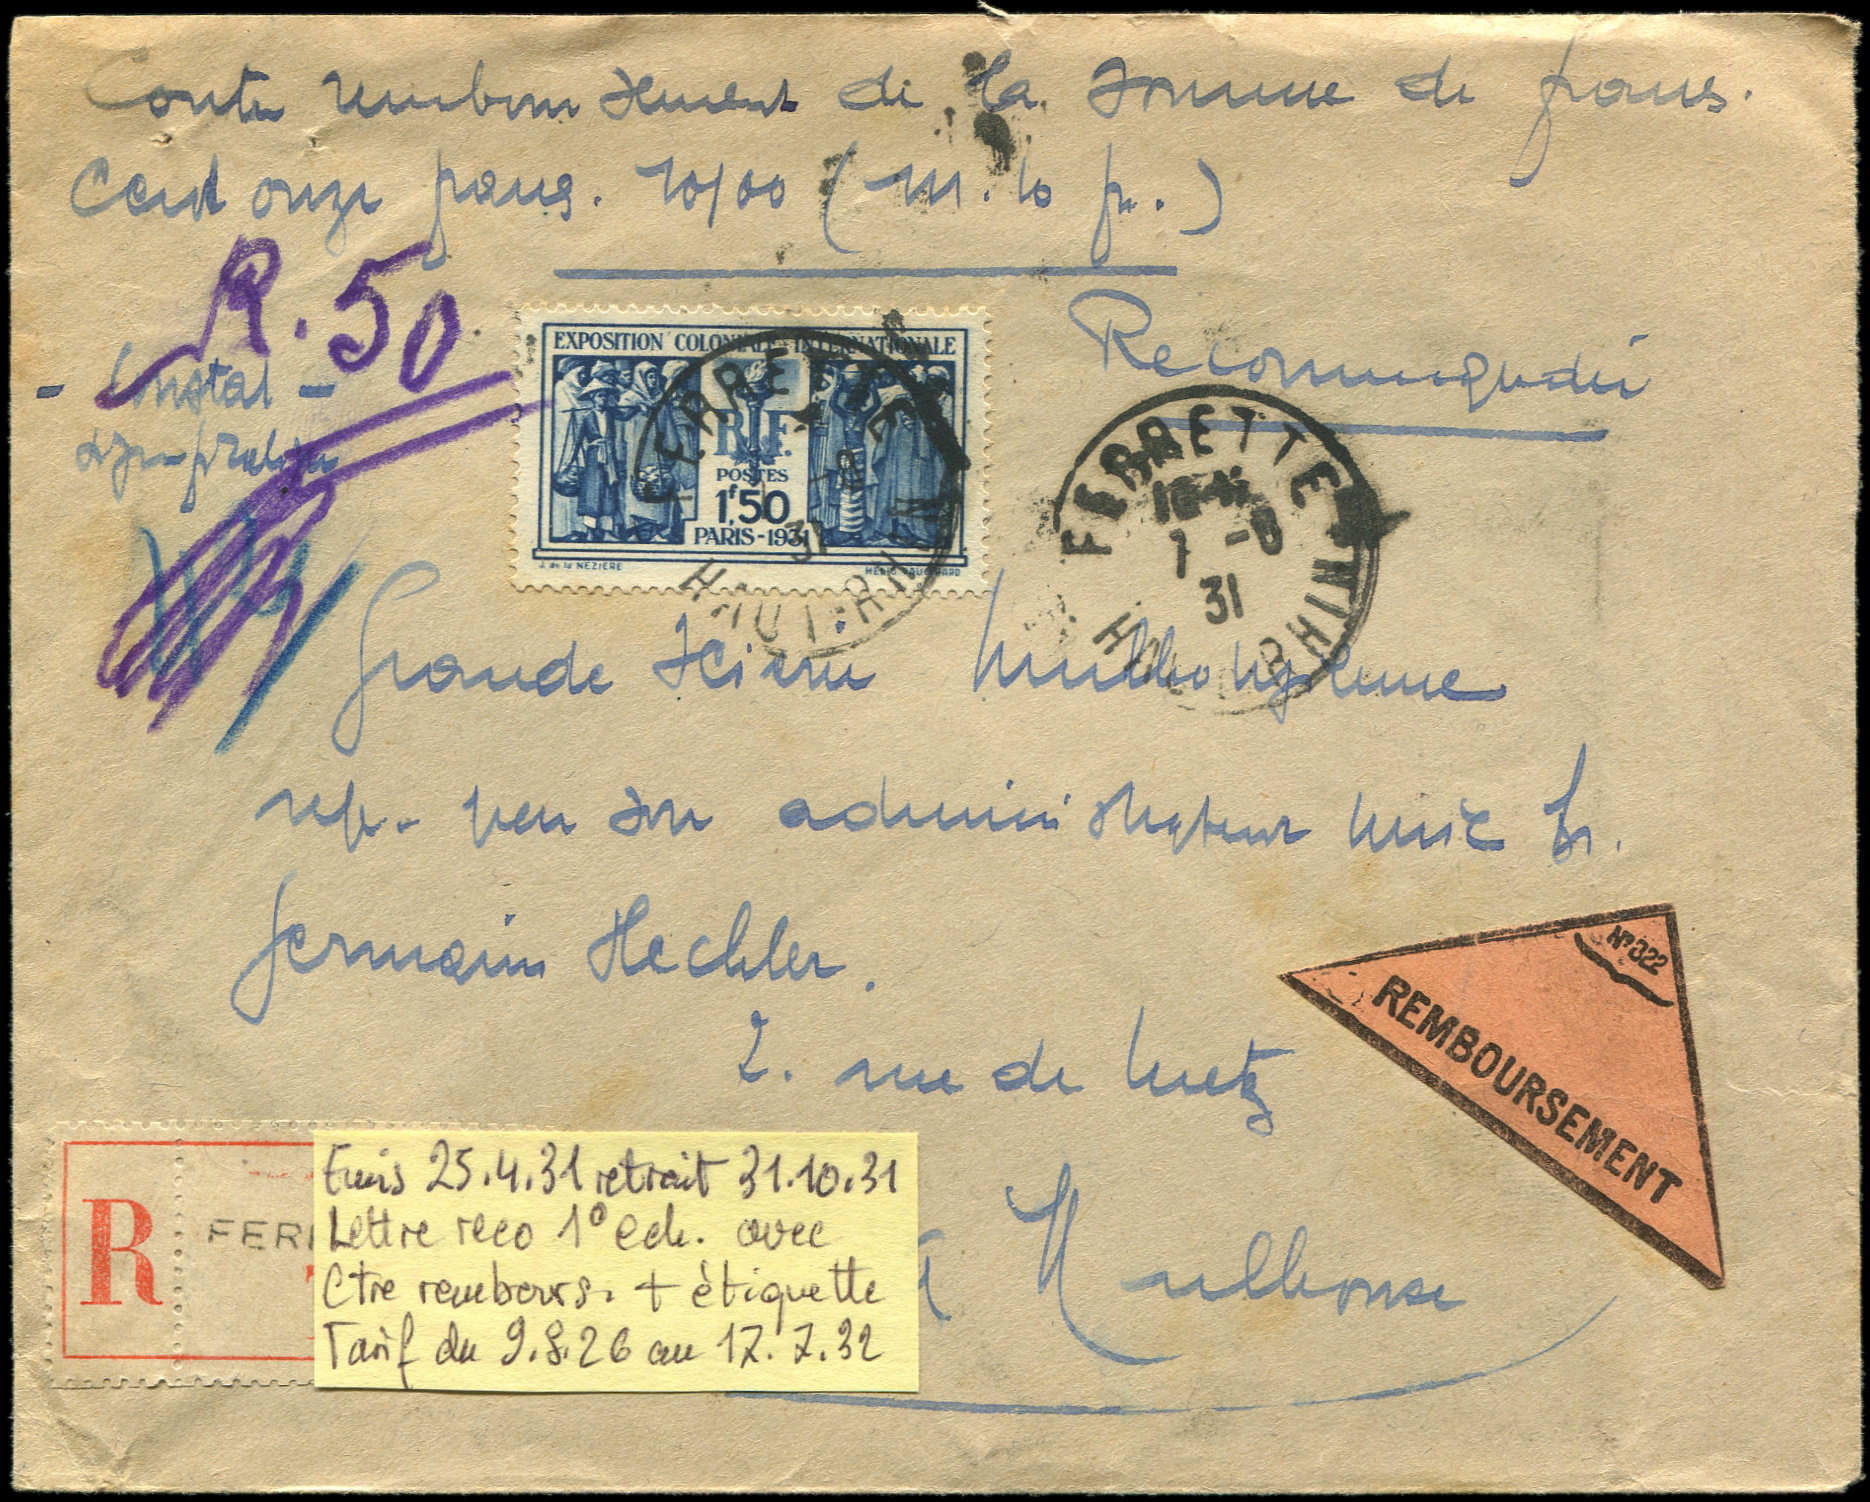 Contre remboursement de la somme de francs.
Cent onze francs. 70/00 (111.70 fr.)
R. 50
Recommandée
EXPOSITION COLONIALE INTERNATIONALE
RF.
POSTES
1f,50
PARIS-1931
J. de la NEZIERE
HELIO VAUGIRARD
FERRETTE
HAUT-RHIN
FERRETTE
1 -8
31
HAUT-RHIN
Grande Scierie Mulhousienne
rep. par son administrateur
Germain Hechler.
2. rue de Metz
à Mulhouse
N° 322
REMBOURSEMENT
R
FER
Emis 25.4.31 retrait 31.10.31
Lettre reco 1° ech. avec
Ctre rembours. + étiquette
Tarif du 9.8.26 au 17.7.32